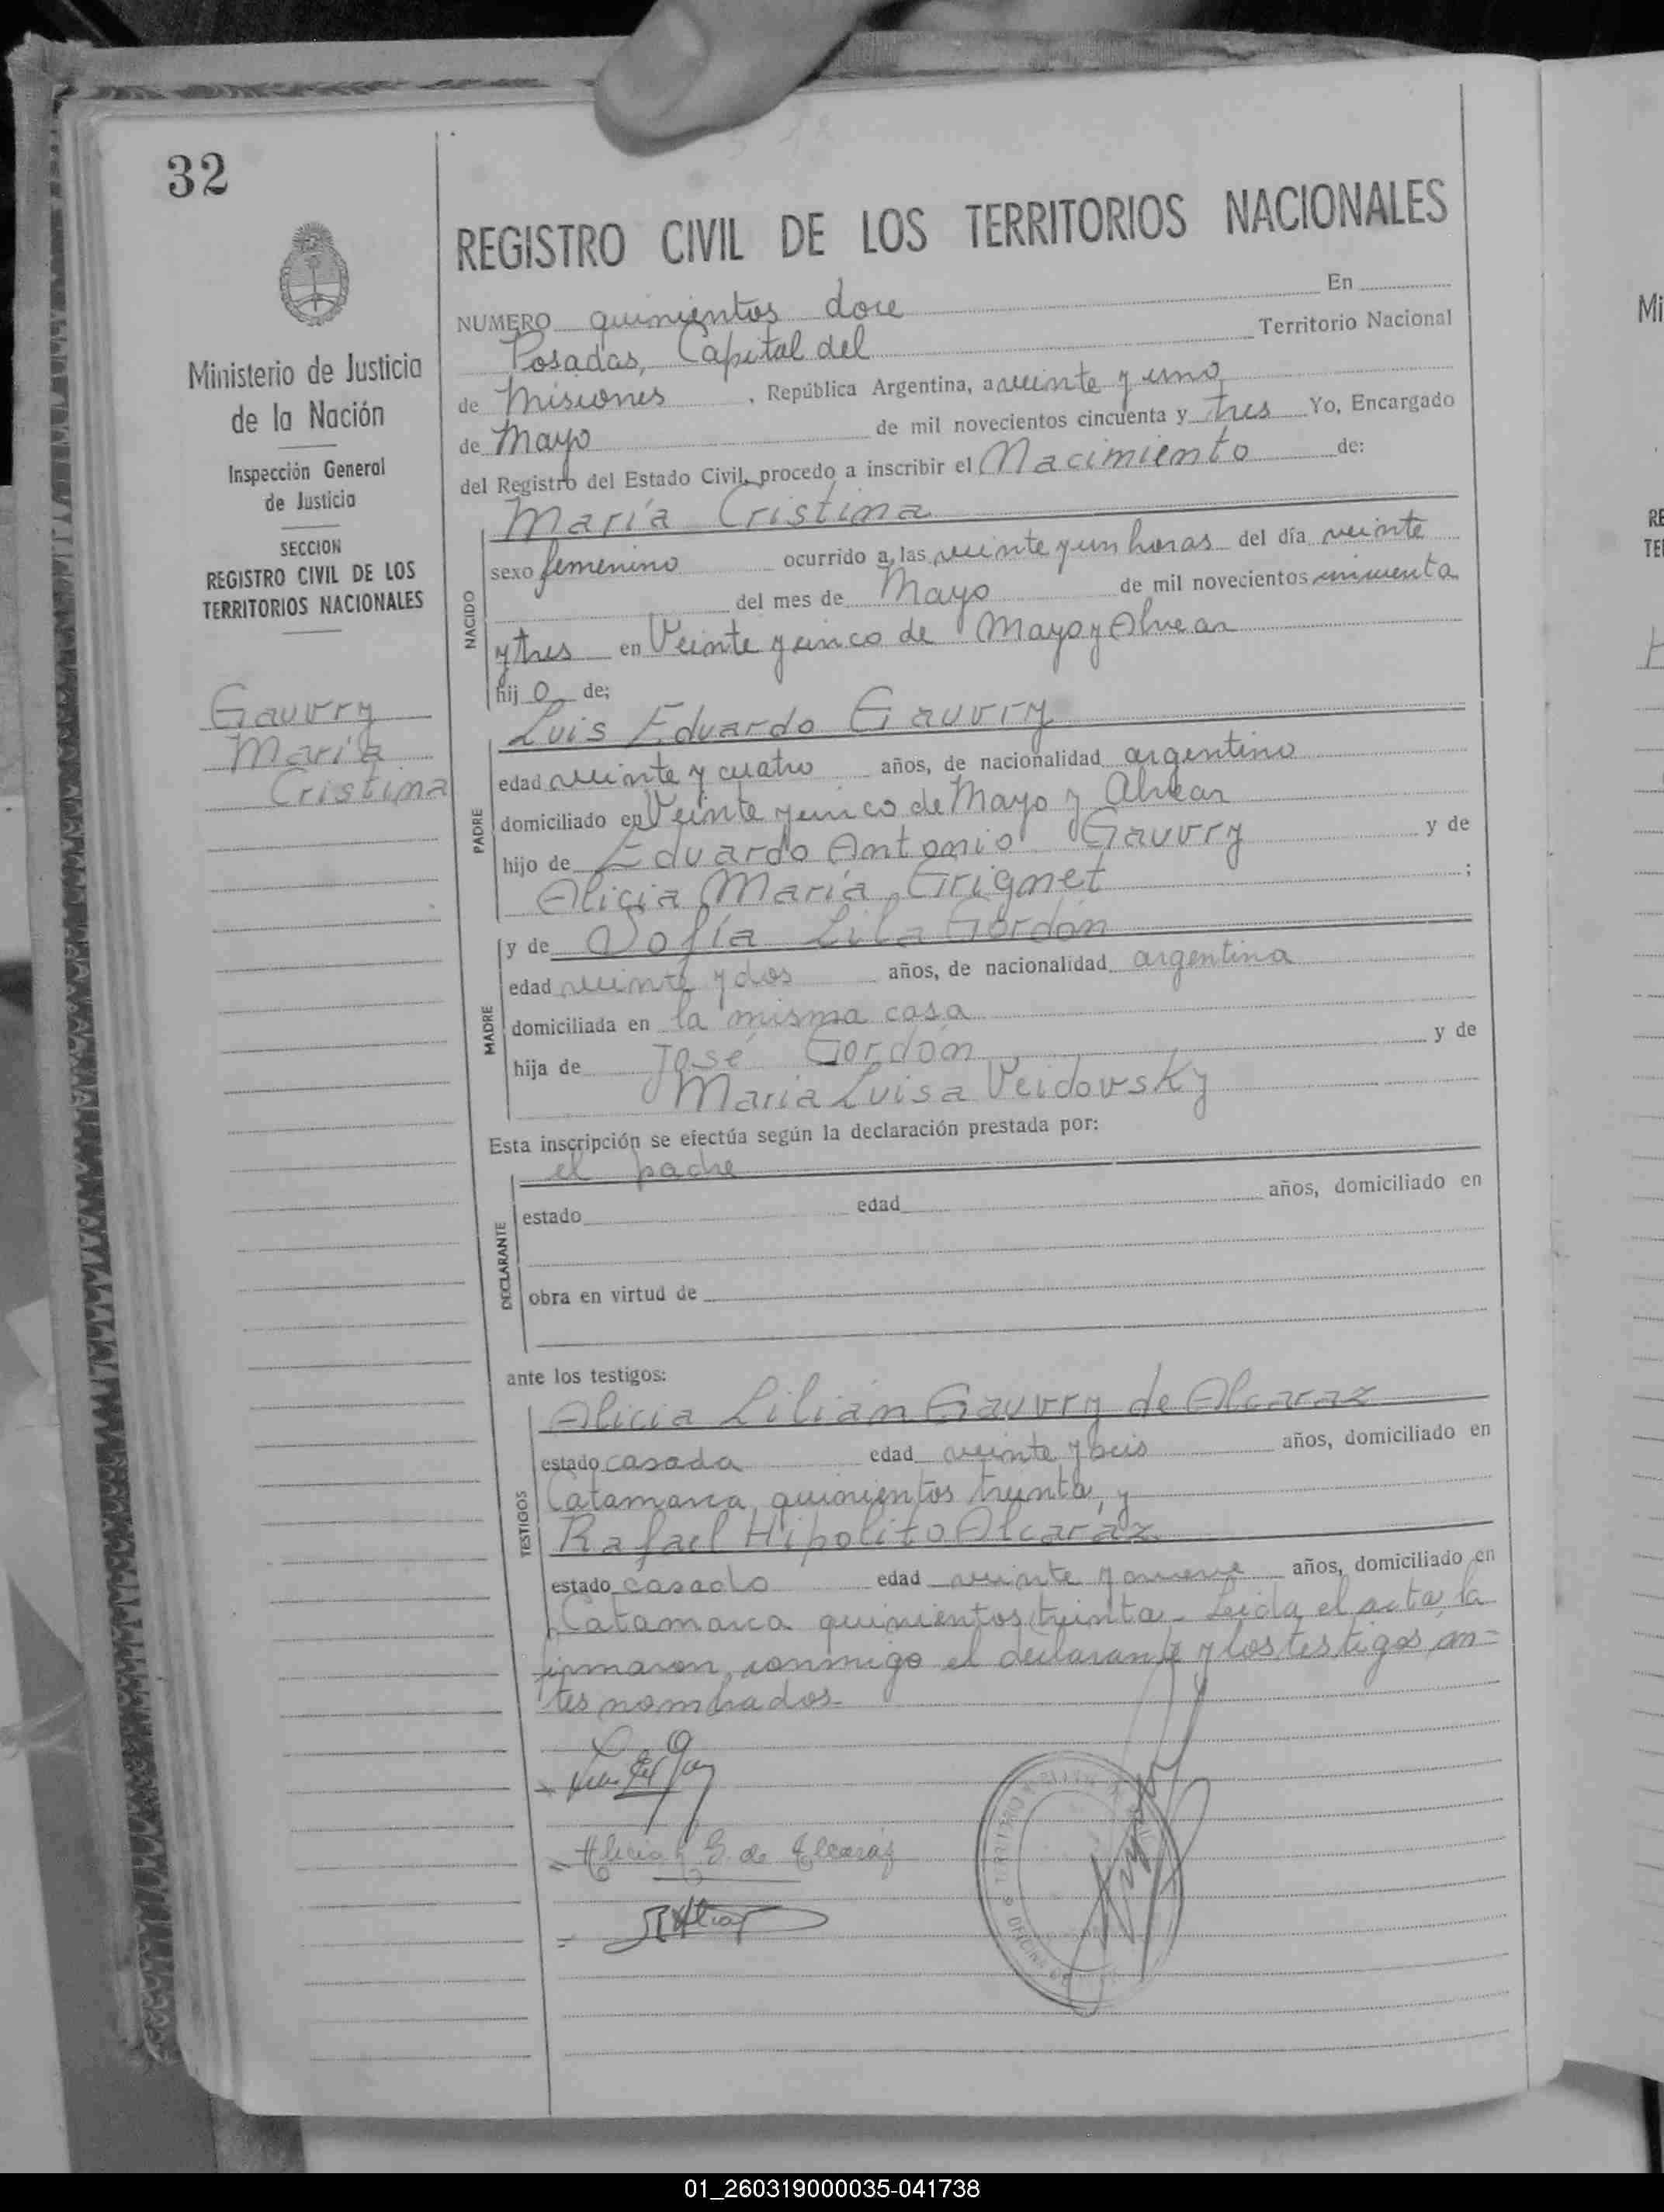 32
Ministerio de Justicia
de la Nación
Inspección General
de Justicia
SECCION
REGISTRO CIVIL DE LOS
TERRITORIOS NACIONALES
Gauvry
María
Cristina
REGISTRO CIVIL DE LOS TERRITORIOS NACIONALES
NUMERO quinientos doce En
Posadas, Capital del Territorio Nacional
de Misiones, República Argentina, a veinte y uno
de Mayo de mil novecientos cincuenta y tres Yo, Encargado
del Registro del Estado Civil, procedo a inscribir el Nacimiento de:
María Cristina
NACIDO
sexo femenino ocurrido a las veinte y un horas del día veinte
del mes de Mayo de mil novecientos cincuenta
y tres en Veinte y cinco de Mayo y Alvear
hij o de;
Luis Eduardo Gauvry
PADRE
edad veinte y cuatro años, de nacionalidad argentino
domiciliado en Veinte y cinco de Mayo y Alvear
hijo de Eduardo Antonio Gauvry y de
Alicia María Grignet ;
MADRE
y de Sofía Lila Gordón
edad veinte y dos años, de nacionalidad argentina
domiciliada en la misma casa
hija de José Gordón y de
María Luisa Veidovsky
Esta inscripción se efectúa según la declaración prestada por:
el padre
DECLARANTE
estado edad años, domiciliado en
obra en virtud de
ante los testigos:
TESTIGOS
Alicia Lilián Gauvry de Alcaraz
estado casada edad veinte y seis años, domiciliado en
Catamarca quinientos treinta, y
Rafael Hipolito Alcaráz
estado casado edad veinte y nueve años, domiciliado en
Catamarca quinientos treinta. Leida el acta, la
firmaron conmigo el declarante y los testigos an=
tes nombrados.-
Alicia G. de Alcaráz
OFICINA
Mi
RE
TE
01_260319000035-041738